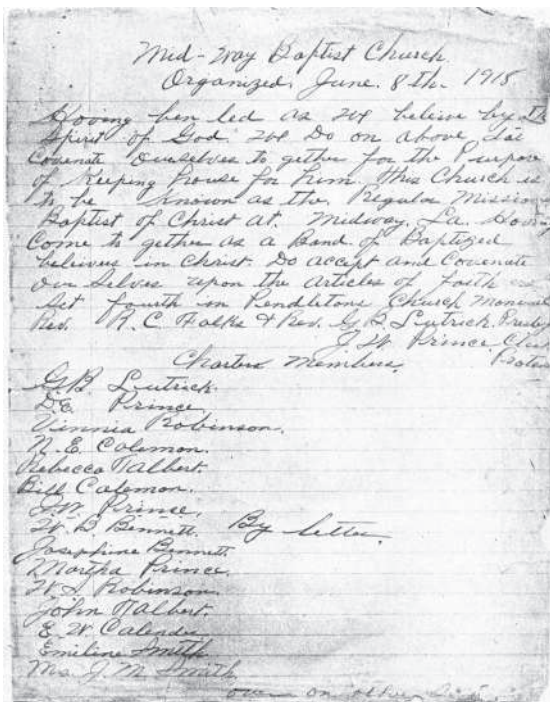 Mid-Way Baptist Church
Organized, June. 8th- 1915
Having ben led as we believe by
Spirit of God. We Do on above
Covenate Ourselves to gether for the Purpose
of Keeping house for Him. This Church is
to be Known as the. Regular
Baptist of Christ at. Midway, La. Having
Come to gether as a Band of Baptized
believers in Christ. Do accept and Covenate
Our Selves upon the Articles of faith
Set fourth in Pendletons Church
Rev. & Rev. G.B. Lutrick.
J. W. Prince
Charter Members.
G.B. Lutrick.
D.E. Prince
Vinnia Robinson.
N. E. Coleman.
Rebecca Talbert.
Bill Coleman.
J.W. Prince.
W. D. Bennett. By letter
Josephine Bennett.
Martha Prince.
W. S. Robinson.
John Talbert.
E. W. Calender
Emiline Smith
Mrs J. M Smith
over on other